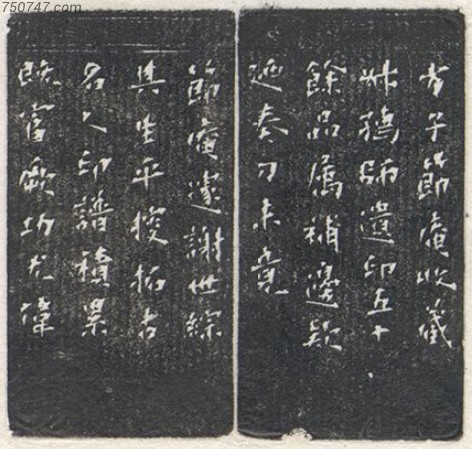 750747.com
方子節庵收藏
尗孺師遺印五十
餘品屬補邊款
迺奏刀未竟
節庵遽謝世綜
其生平搜拓古
名人印譜積累
既富厥功尤偉